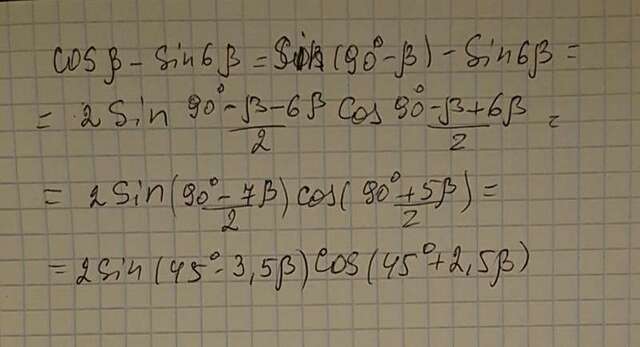 cos β - sin 6β = sin (90° - β) - sin 6β =
= 2 sin (90° - β - 6β)/2 cos (90° - β + 6β)/2 =
= 2 sin ((90° - 7β)/2) cos ((90° + 5β)/2) =
= 2 sin (45° - 3,5β) cos (45° + 2,5β)